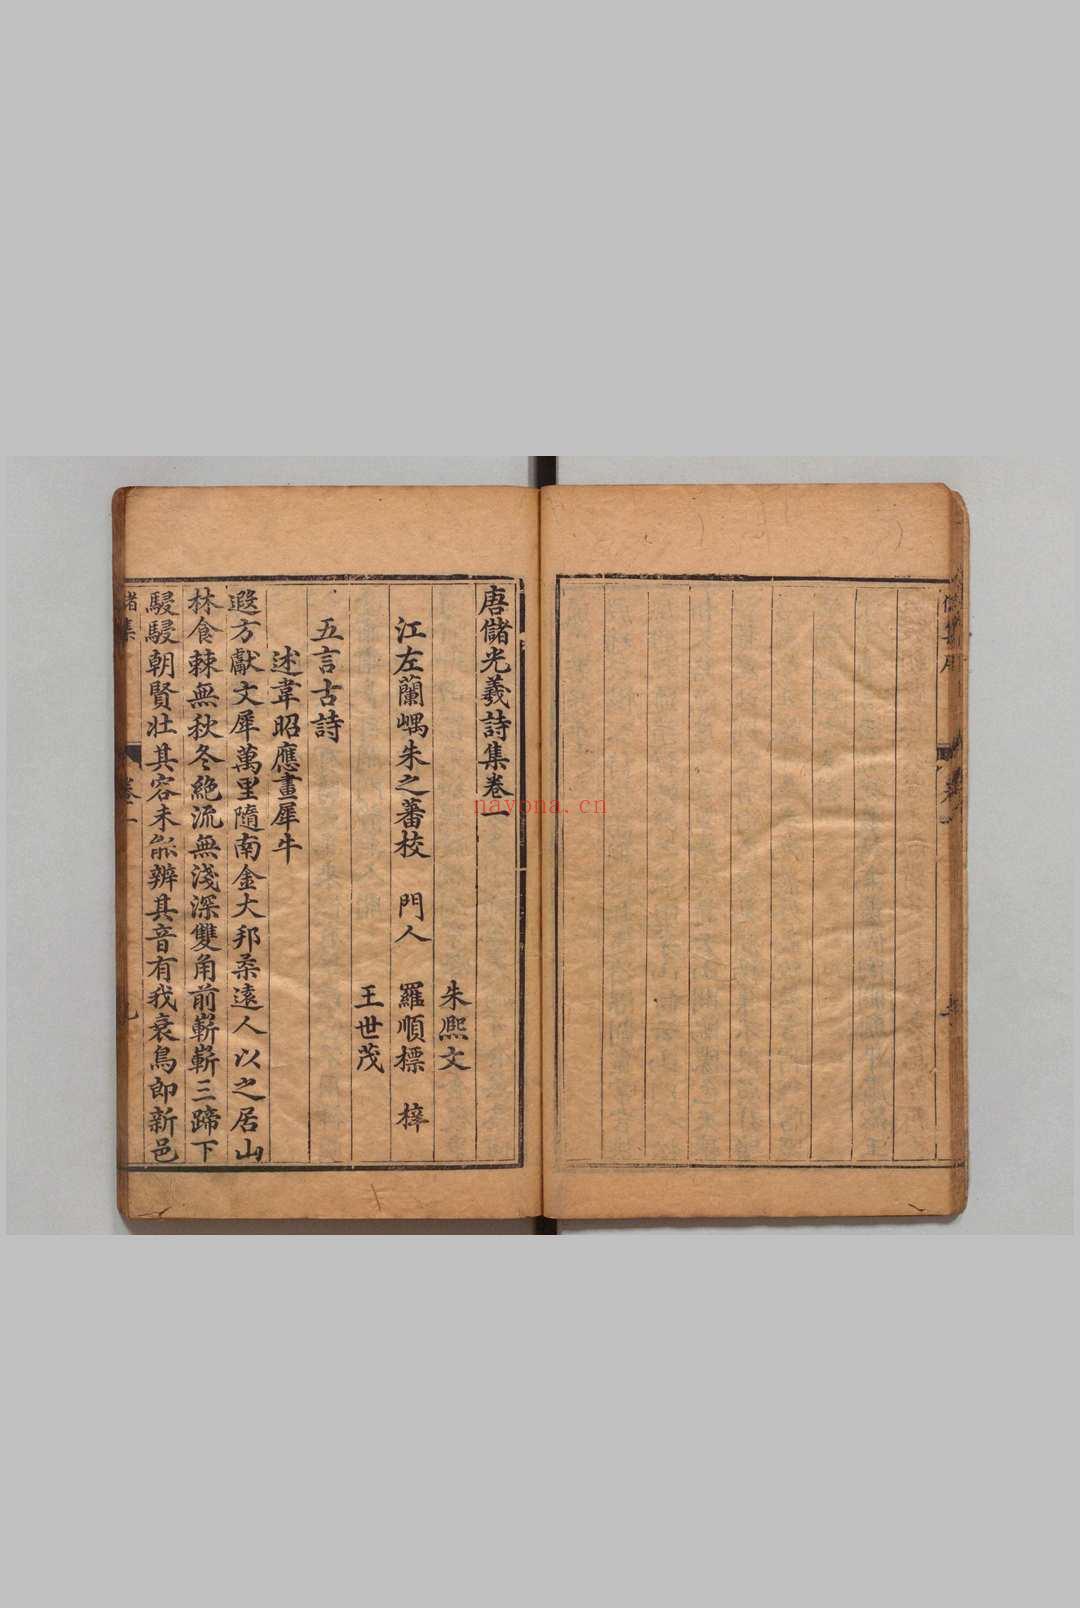 唐儲光羲詩集卷一
朱熙文
江左蘭嵎朱之蕃校 門人 羅順標 梓
王世茂
五言古詩
述韋昭應畫犀牛
遐方獻文犀萬里隨南金大邦柔遠人以之居山
林食棘無秋冬絶流無淺深雙角前嶄嶄三蹄下
駸駸朝賢壯其容未能辨其音有我衰鳥郎新邑
卷一
nayona.cn